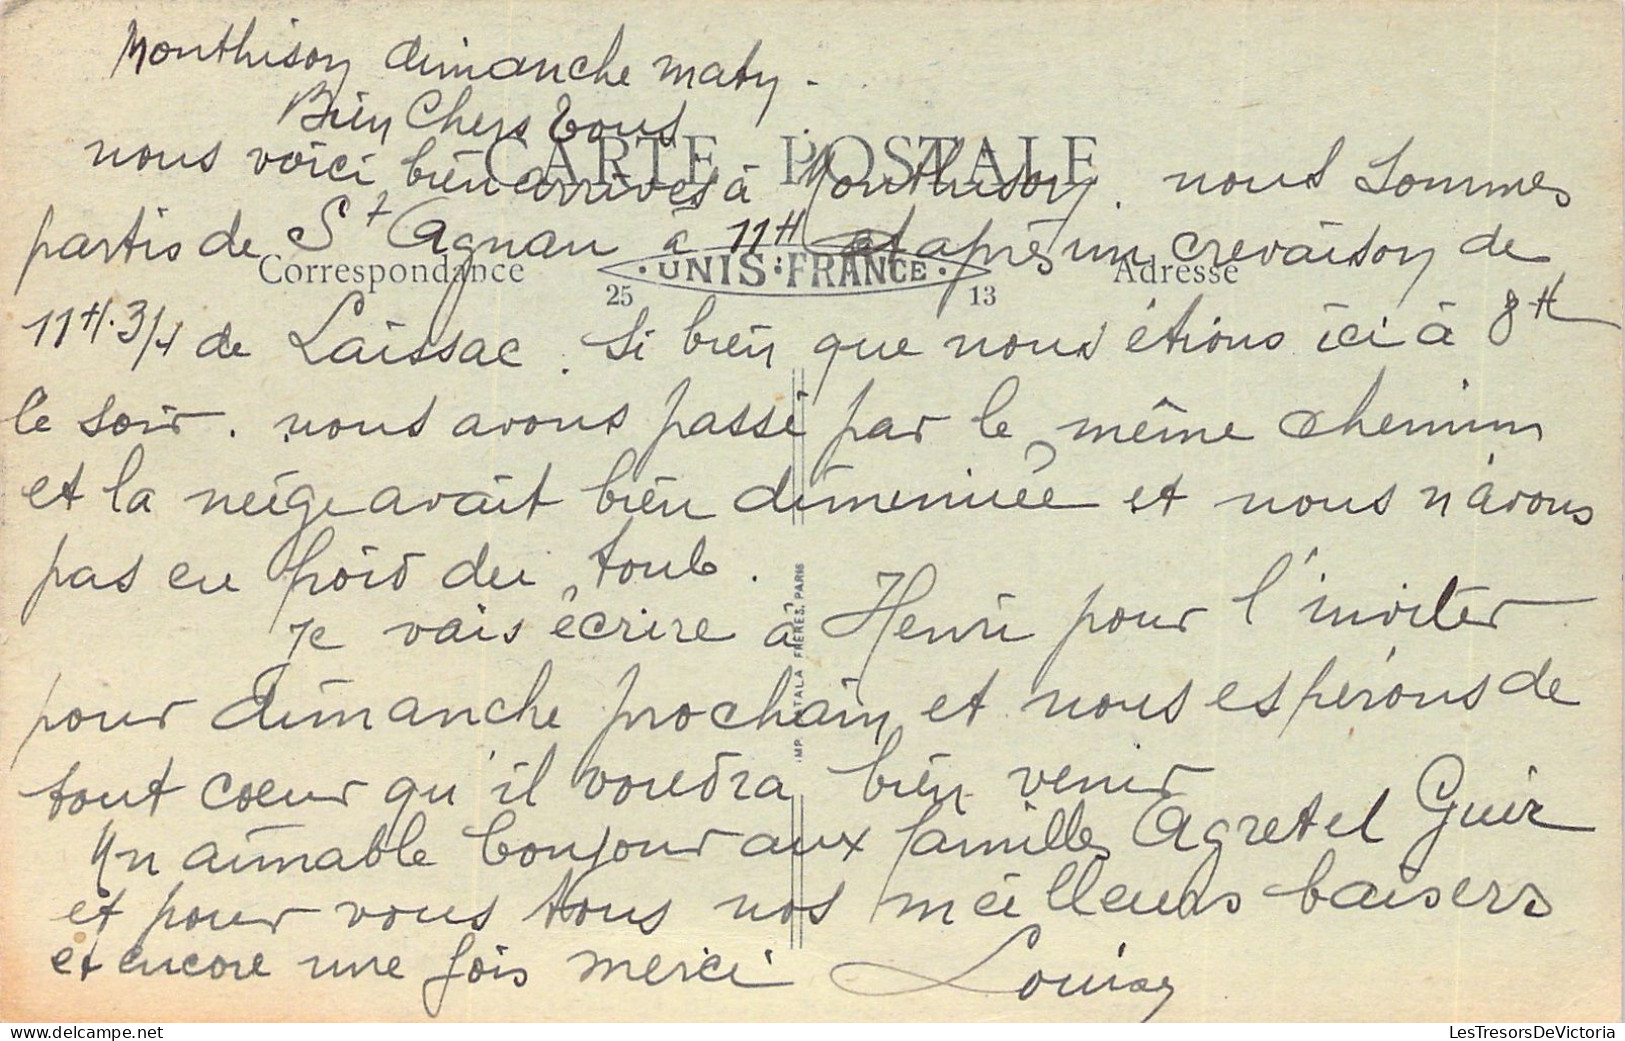 Monthison dimanche matin -
Bien Chers tous
CARTE POSTALE
nous voici bien arrivés à Monthison. nous sommes
partis de St Agnan à 11H et après un crevaison de
Correspondance
UNIS-FRANCE
Adresse
25 13
11H.3/4 de Laissac. Si bien que nous étions ici à 8H
le soir. nous avons passé par le même chemin
et la neige avait bien dimenuée et nous n'avons
pas eu froid du tout.
je vais écrire à Henri pour l'inviter
pour dimanche prochain et nous espérons de
tout coeur qu'il voudra bien venir
Un aimable bonjour aux familles Agret et Guir
et pour vous tous nos meilleurs baisers
et encore une fois merci Louise
IMP. CATALA FRERES, PARIS
LesTresorsDeVictoria